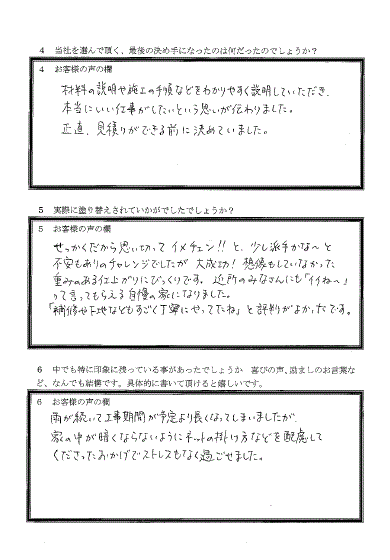 4 当社を選んで頂く、最後の決め手になったのは何だったのでしょうか？
4 お客様の声の欄
材料の説明や施工の手順などをわかりやすく説明していただき、
本当にいい仕事がしたいという思いが伝わりました。
正直、見積りができる前に決めていました。
5 実際に塗り替えされていかがでしたでしょうか？
5 お客様の声の欄
せっかくだから思い切って イメチェン!! と、少し派手かな〜と
不安もありのチャレンジでしたが 大成功! 想像もしていなかった
重みのある仕上がりにびっくりです。近所のみなさんにも「イイね〜」
って言ってもらえる自慢の家になりました。
「補修や下地などもすごく丁寧にやってたね」と評判がよかったです。
6 中でも特に印象に残っている事があったでしょうか 喜びの声、励ましのお言葉な
ど、なんでも結構です。具体的に書いて頂けると嬉しいです。
6 お客様の声の欄
雨が続いて工事期間が予定より長くなってしまいましたが、
家の中が暗くならないようにネットの掛け方などを配慮して
くださったおかげでストレスもなく過ごせました。